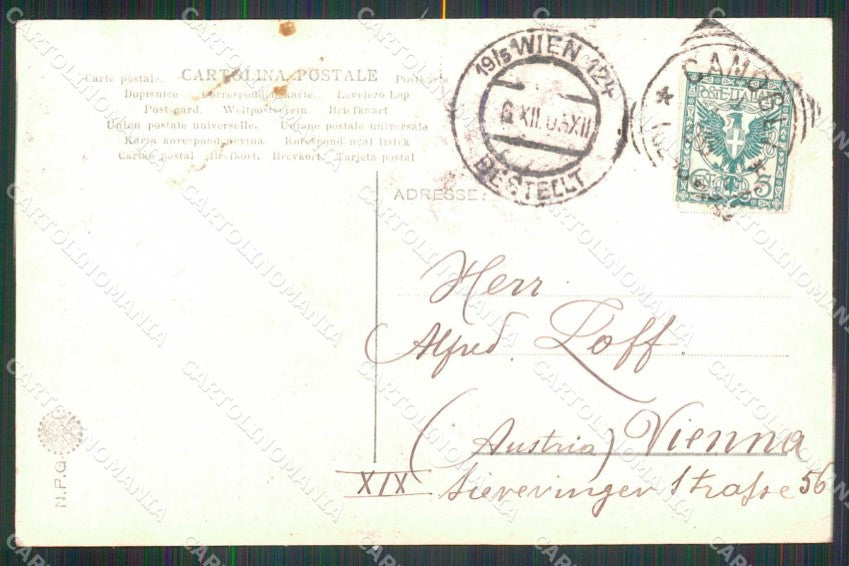 Carte postale. CARTOLINA POSTALE Postkarte
Dopisnice Correspondenzkarte. Levelezö-Lap
Post card. Weltpostverein. Briefkaart
Union postale universelle. Unione postale universale
Karta korespondencyjna. Korespondenční listek
Cartão postal. Brefkort. Brevkort. Tarjeta postal
19/5 WIEN 124
6 XII 05 XII
BESTELLT
POSTE ITALIANE
5
ADRESSE:
Herr
Alfred. Loff.
(Austria) Vienna
XIX Sieveringer Strasse 56
N.P.G.
CARTOLINOMANIA